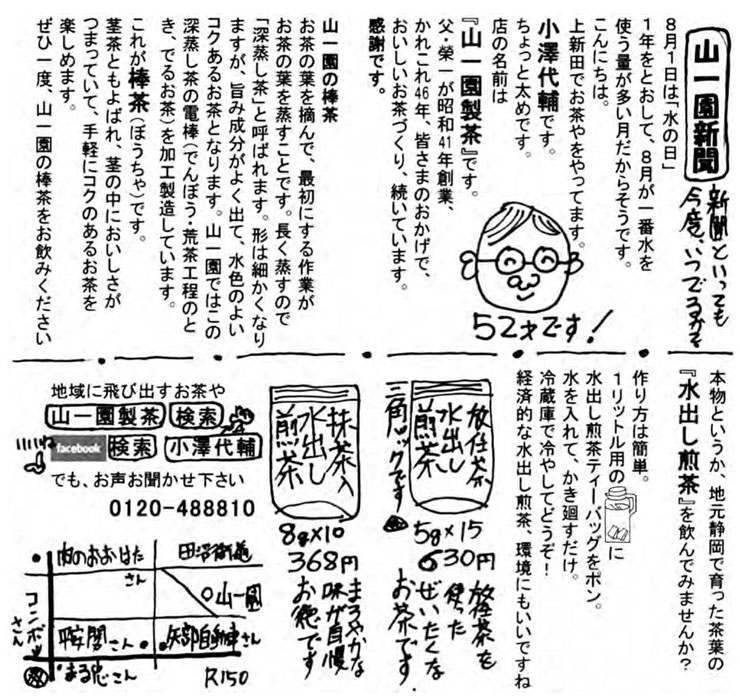 山一園新聞
新聞といっても
今度、いつでるかな
8月1日は「水の日」
1年をとおして、8月が一番水を
使う量が多い月だからそうです。
こんにちは。
上新田でお茶やをやってます。
小澤代輔です。
ちょっと太めです。
店の名前は
『山一園製茶』です。
父・榮一が昭和41年創業、
かれこれ46年、皆さまのおかげで、
おいしいお茶づくり、続いています。
感謝です。
52才です!
山一園の棒茶
お茶の葉を摘んで、最初にする作業が
お茶の葉を蒸すことです。長く蒸すので
「深蒸し茶」と呼ばれます。形は細かくなり
ますが、旨み成分がよく出て、水色のよい
コクあるお茶となります。山一園ではこの
深蒸し茶の電棒(でんぼう・荒茶工程のと
き、でるお茶)を加工製造しています。
これが棒茶(ぼうちゃ)です。
茎茶ともよばれ、茎の中においしさが
つまっていて、手軽にコクのあるお茶を
楽しめます。
ぜひ一度、山一園の棒茶をお飲みください
本物というか、地元静岡で育った茶葉の
『水出し煎茶』を飲んでみませんか?
作り方は簡単。
1リットル用の
に
水出し煎茶ティーバッグをポン。
水を入れて、かき廻すだけ。
冷蔵庫で冷やしてどうぞ!
経済的な水出し煎茶、環境にもいいですね
放任茶
水出し
煎茶
三角パックです
5g×15
630円
放任茶を
使った
ぜいたくな
お茶です。
抹茶入
水出し
煎茶
8g×10
368円
まろやかな
味が自慢
お徳です
地域に飛び出すお茶や
山一園製茶 検索
いいね
facebook 検索 小澤代輔
でも、お声お聞かせ下さい
0120-488810
肉のおおはた
さん
田沼街道
○山一園
コンボッ
さん
鞍間さん
矢部自動車さん
まる忠さん
R150